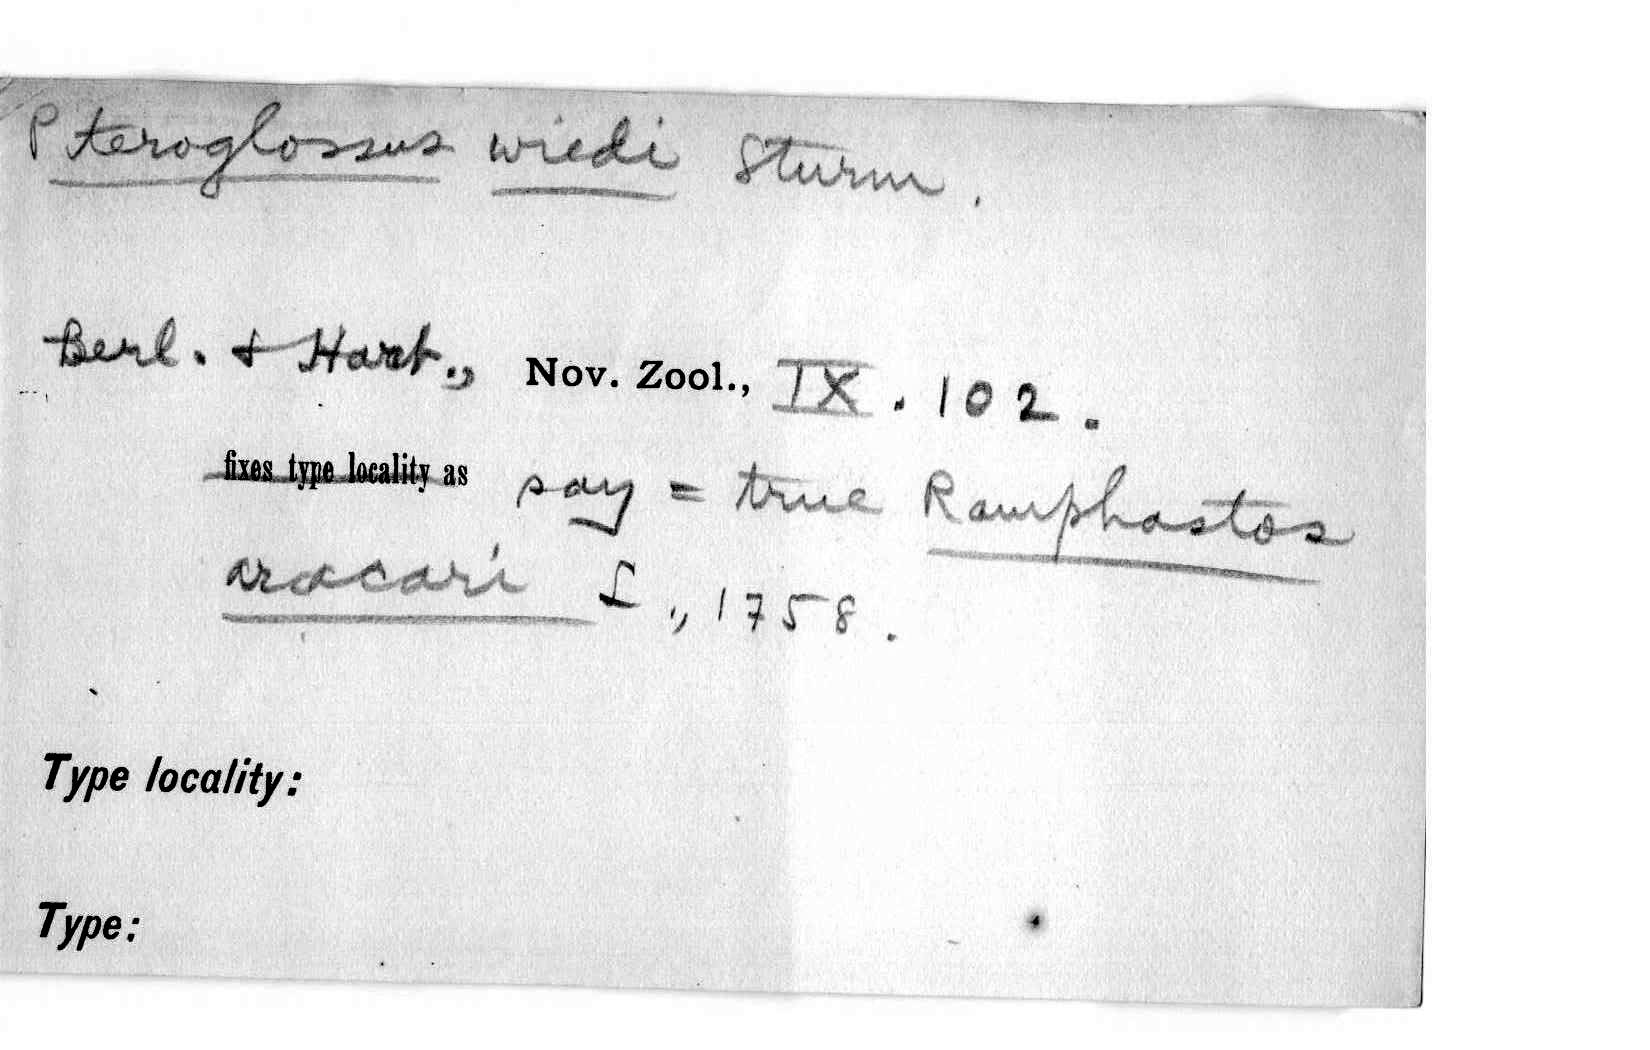 Pteroglossus wiedi Sturm.
Berl. & Hart., Nov. Zool., IX. 102.
fixes type locality as say = true Ramphastos
aracari L., 1758.
Type locality:
Type: